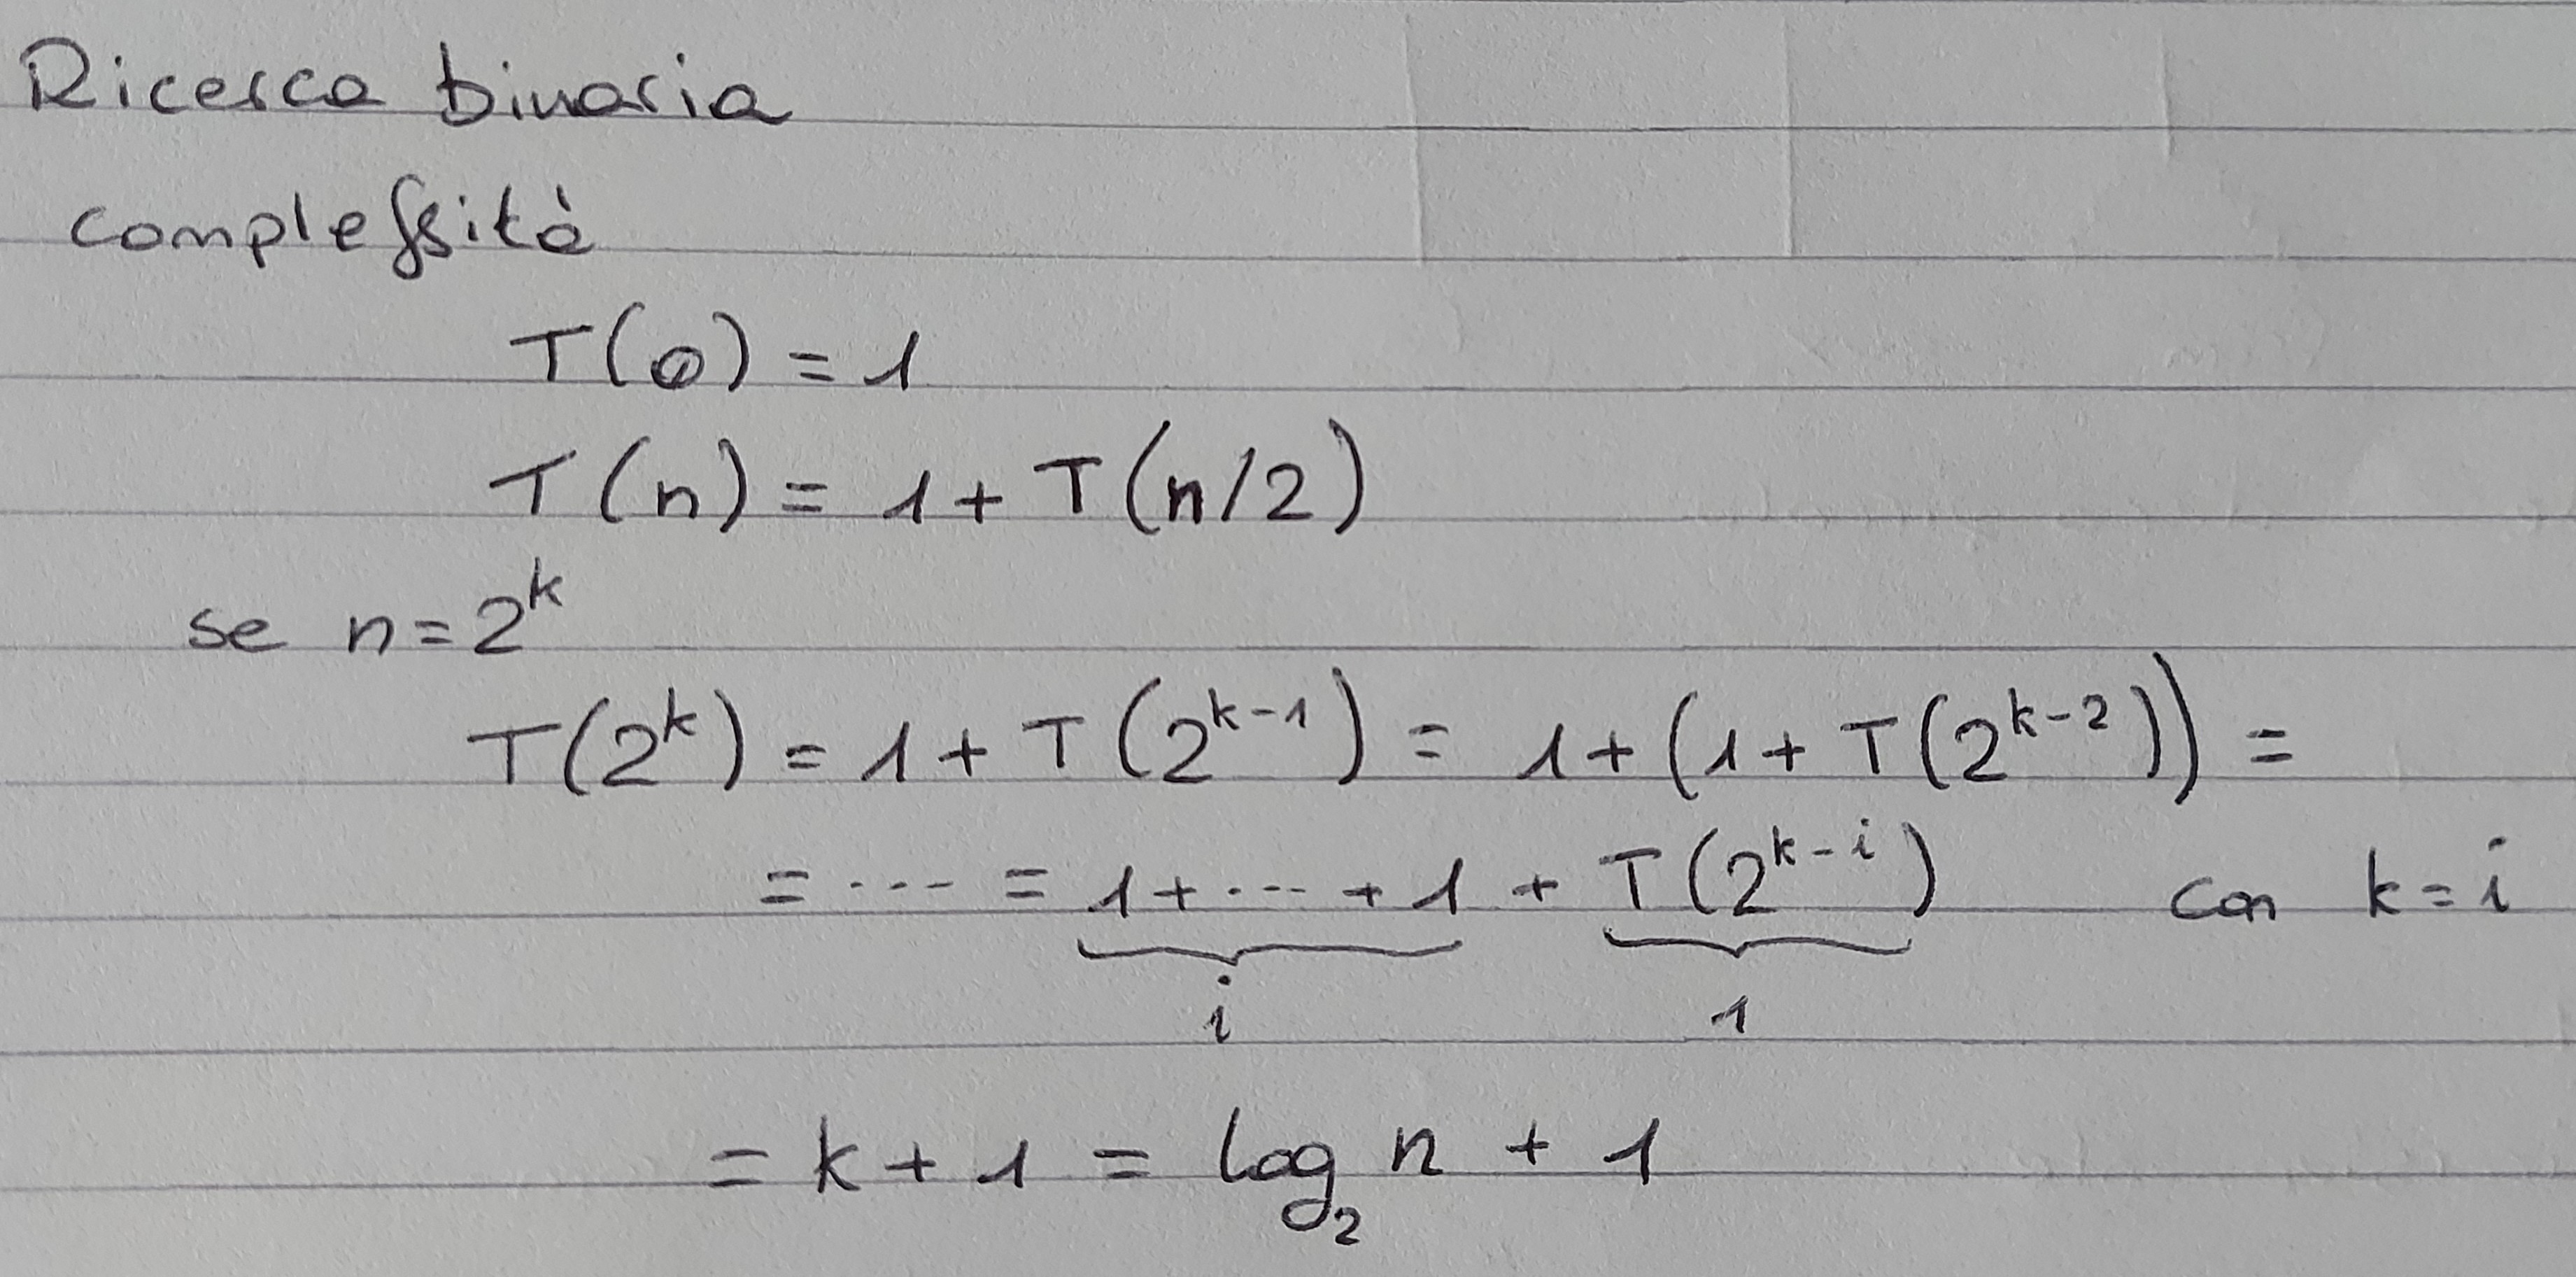 Ricerca binaria
complessità
T(0) = 1
T(n) = 1 + T(n/2)
se n = 2^k
T(2^k) = 1 + T(2^{k-1}) = 1 + (1 + T(2^{k-2})) =
= ... = 1 + ... + 1 + T(2^{k-i}) con k = i
i 1
= k + 1 = log_2 n + 1